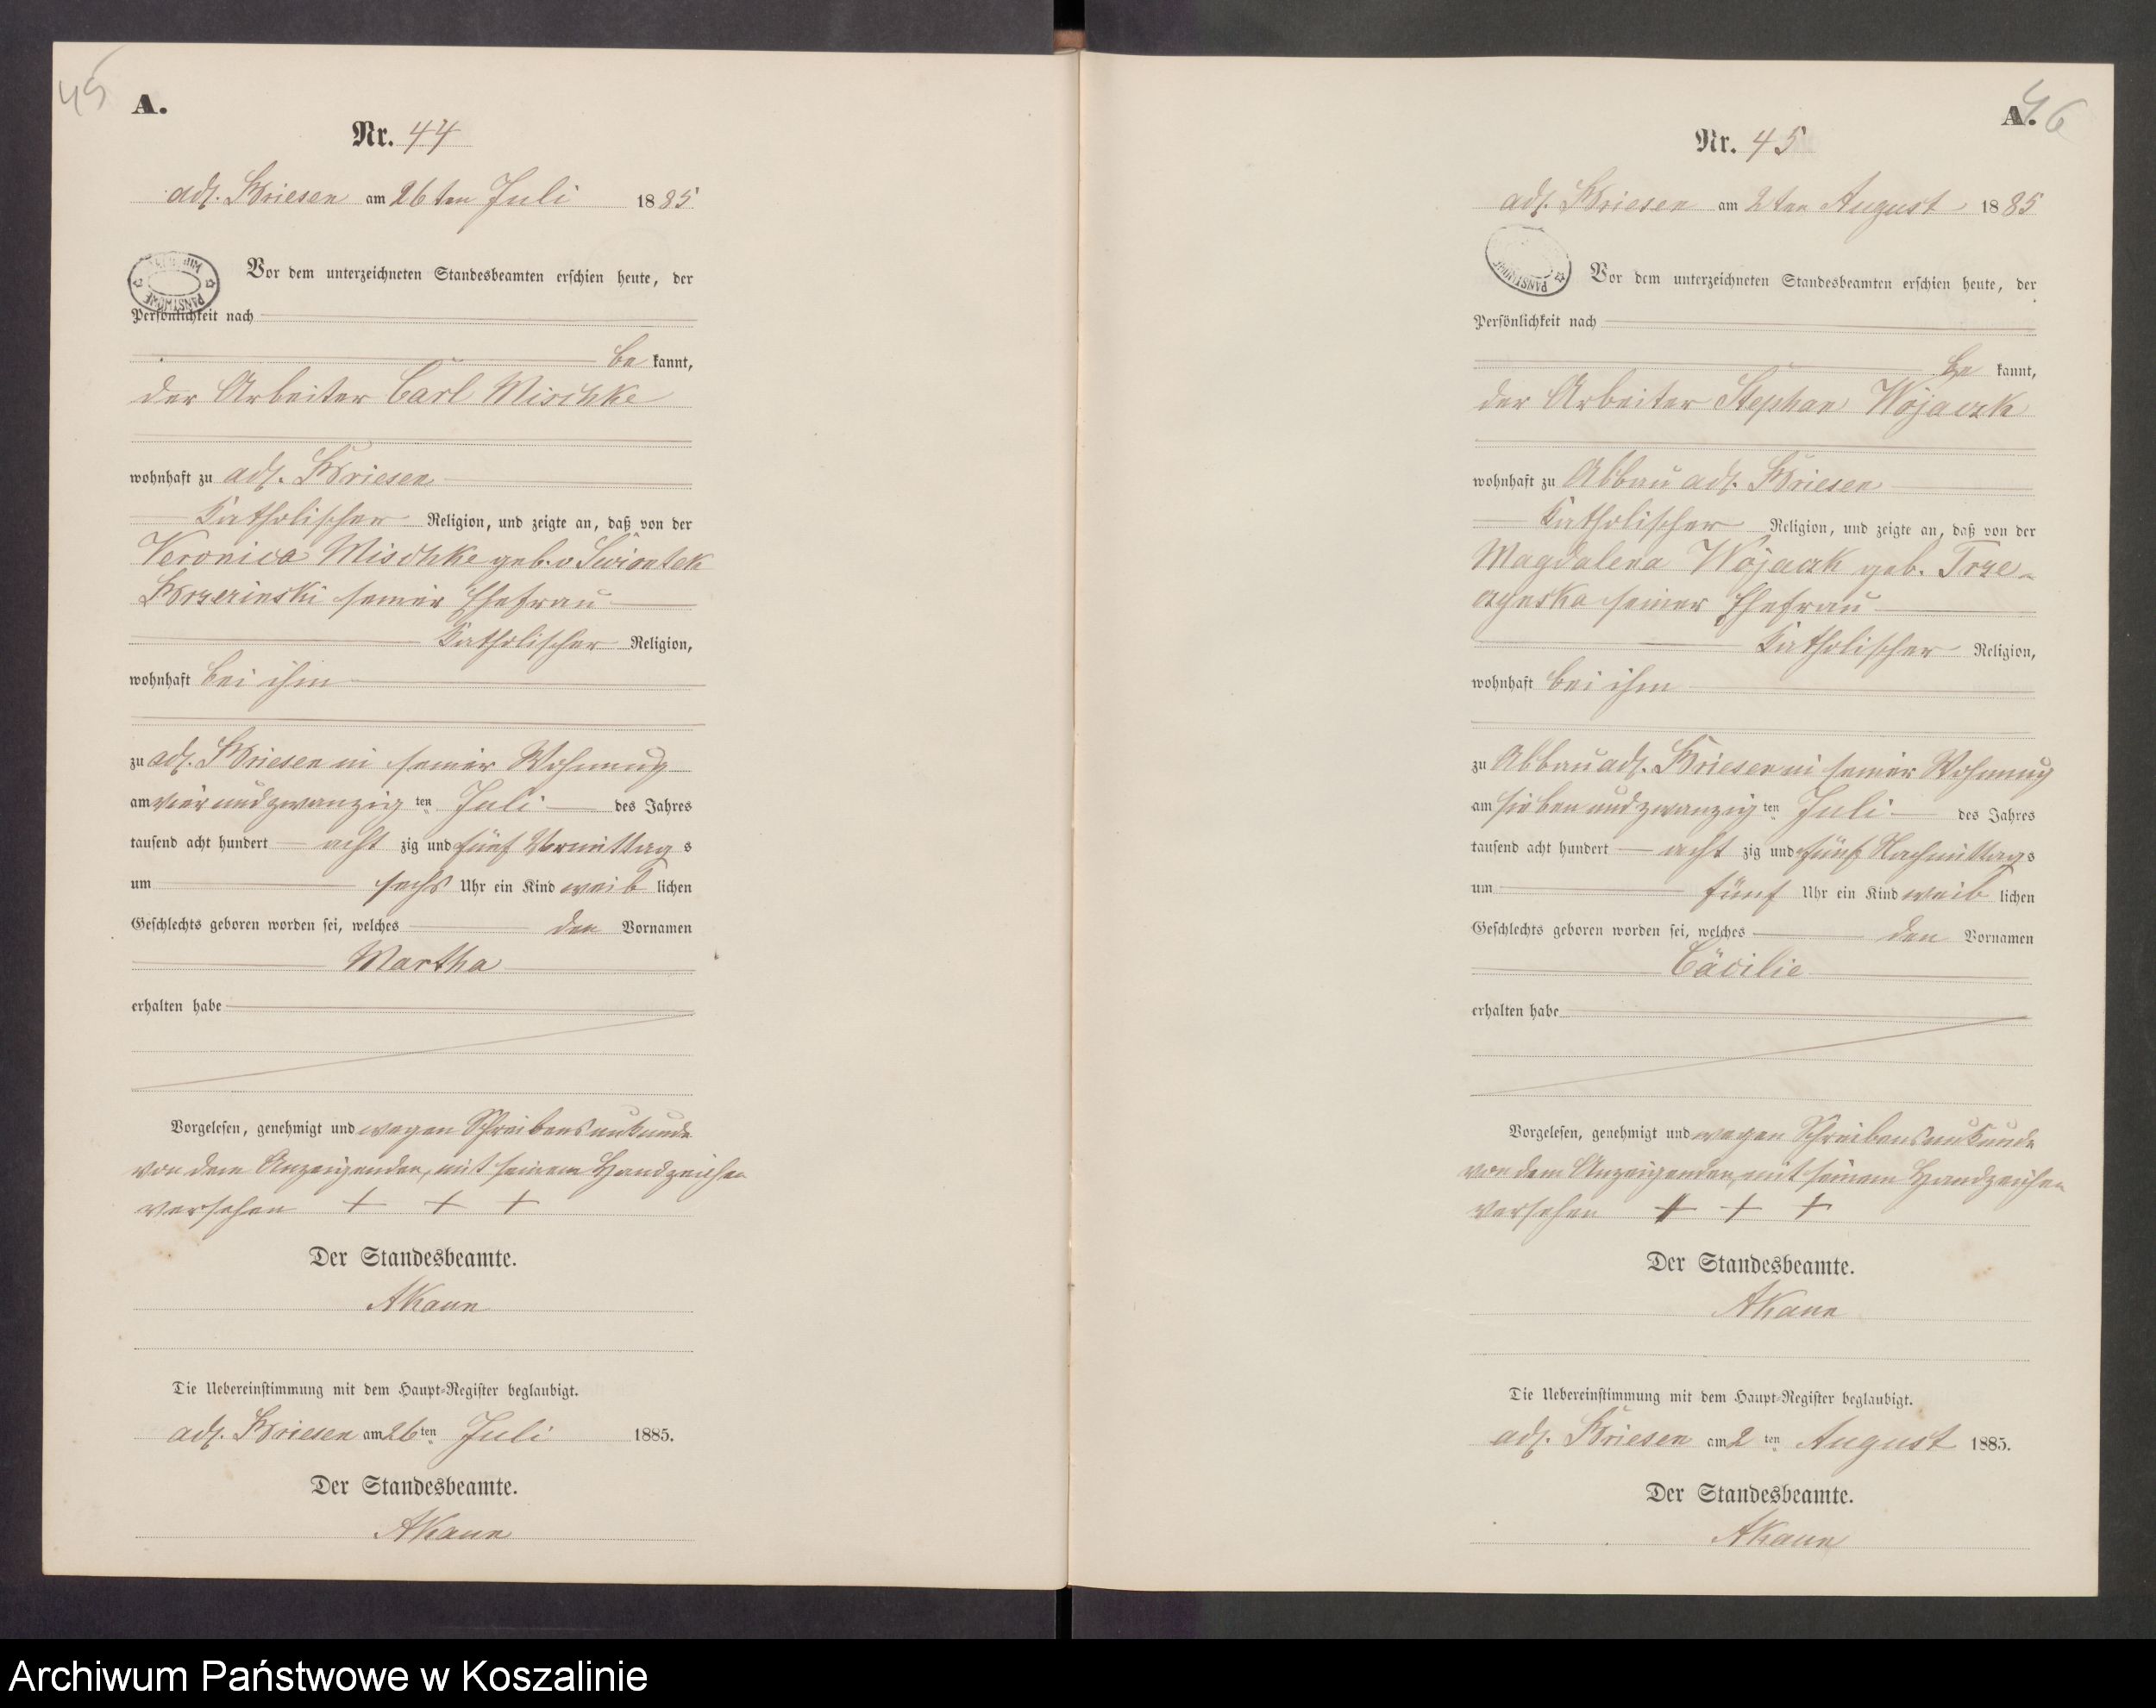 45
A.
Nr. 44
adl. Briesen am 26ten Juli 1885
Vor dem unterzeichneten Standesbeamten erschien heute, der
Persönlichkeit nach
be kannt,
der Arbeiter Carl Mischke
wohnhaft zu adl. Briesen
Katholischer Religion, und zeigte an, daß von der
Veronica Mischke geb. v Swiontek
Brzezinski seiner Ehefrau
Katholischer Religion,
wohnhaft bei ihm
zu adl. Briesen in seiner Wohnung
am vier und zwanzig ten Juli des Jahres
tausend acht hundert acht zig und fünf Vormittag s
um sechs Uhr ein Kind weib lichen
Geschlechts geboren worden sei, welches den Vornamen
Martha
erhalten habe
Vorgelesen, genehmigt und wegen Schreibensunkunde
von dem Anzeigenden, mit seinem Handzeichen
versehen + + +
Der Standesbeamte.
AKaun
Die Uebereinstimmung mit dem Haupt-Register beglaubigt.
adl. Briesen am 26ten Juli 1885.
Der Standesbeamte.
AKaun
A.
46
Nr. 45
adl. Briesen am 2ten August 1885
Vor dem unterzeichneten Standesbeamten erschien heute, der
Persönlichkeit nach
be kannt,
der Arbeiter Stephan Wojaczk
wohnhaft zu Abbau adl. Briesen
Katholischer Religion, und zeigte an, daß von der
Magdalena Wojaczk geb. Trze-
seiner Ehefrau
Katholischer Religion,
wohnhaft bei ihm
zu Abbau adl. Briesen in seiner Wohnung
am sieben und zwanzig ten Juli des Jahres
tausend acht hundert acht zig und fünf Nachmittag s
um fünf Uhr ein Kind weib lichen
Geschlechts geboren worden sei, welches den Vornamen
Cäcilie
erhalten habe
Vorgelesen, genehmigt und wegen Schreibensunkunde
von dem Anzeigenden, mit seinem Handzeichen
versehen + + +
Der Standesbeamte.
AKaun
Die Uebereinstimmung mit dem Haupt-Register beglaubigt.
adl. Briesen am 2 ten August 1885.
Der Standesbeamte.
AKaun
Archiwum Państwowe w Koszalinie